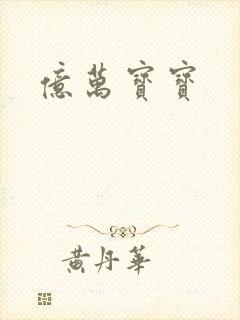 億萬寶寶
黃丹華